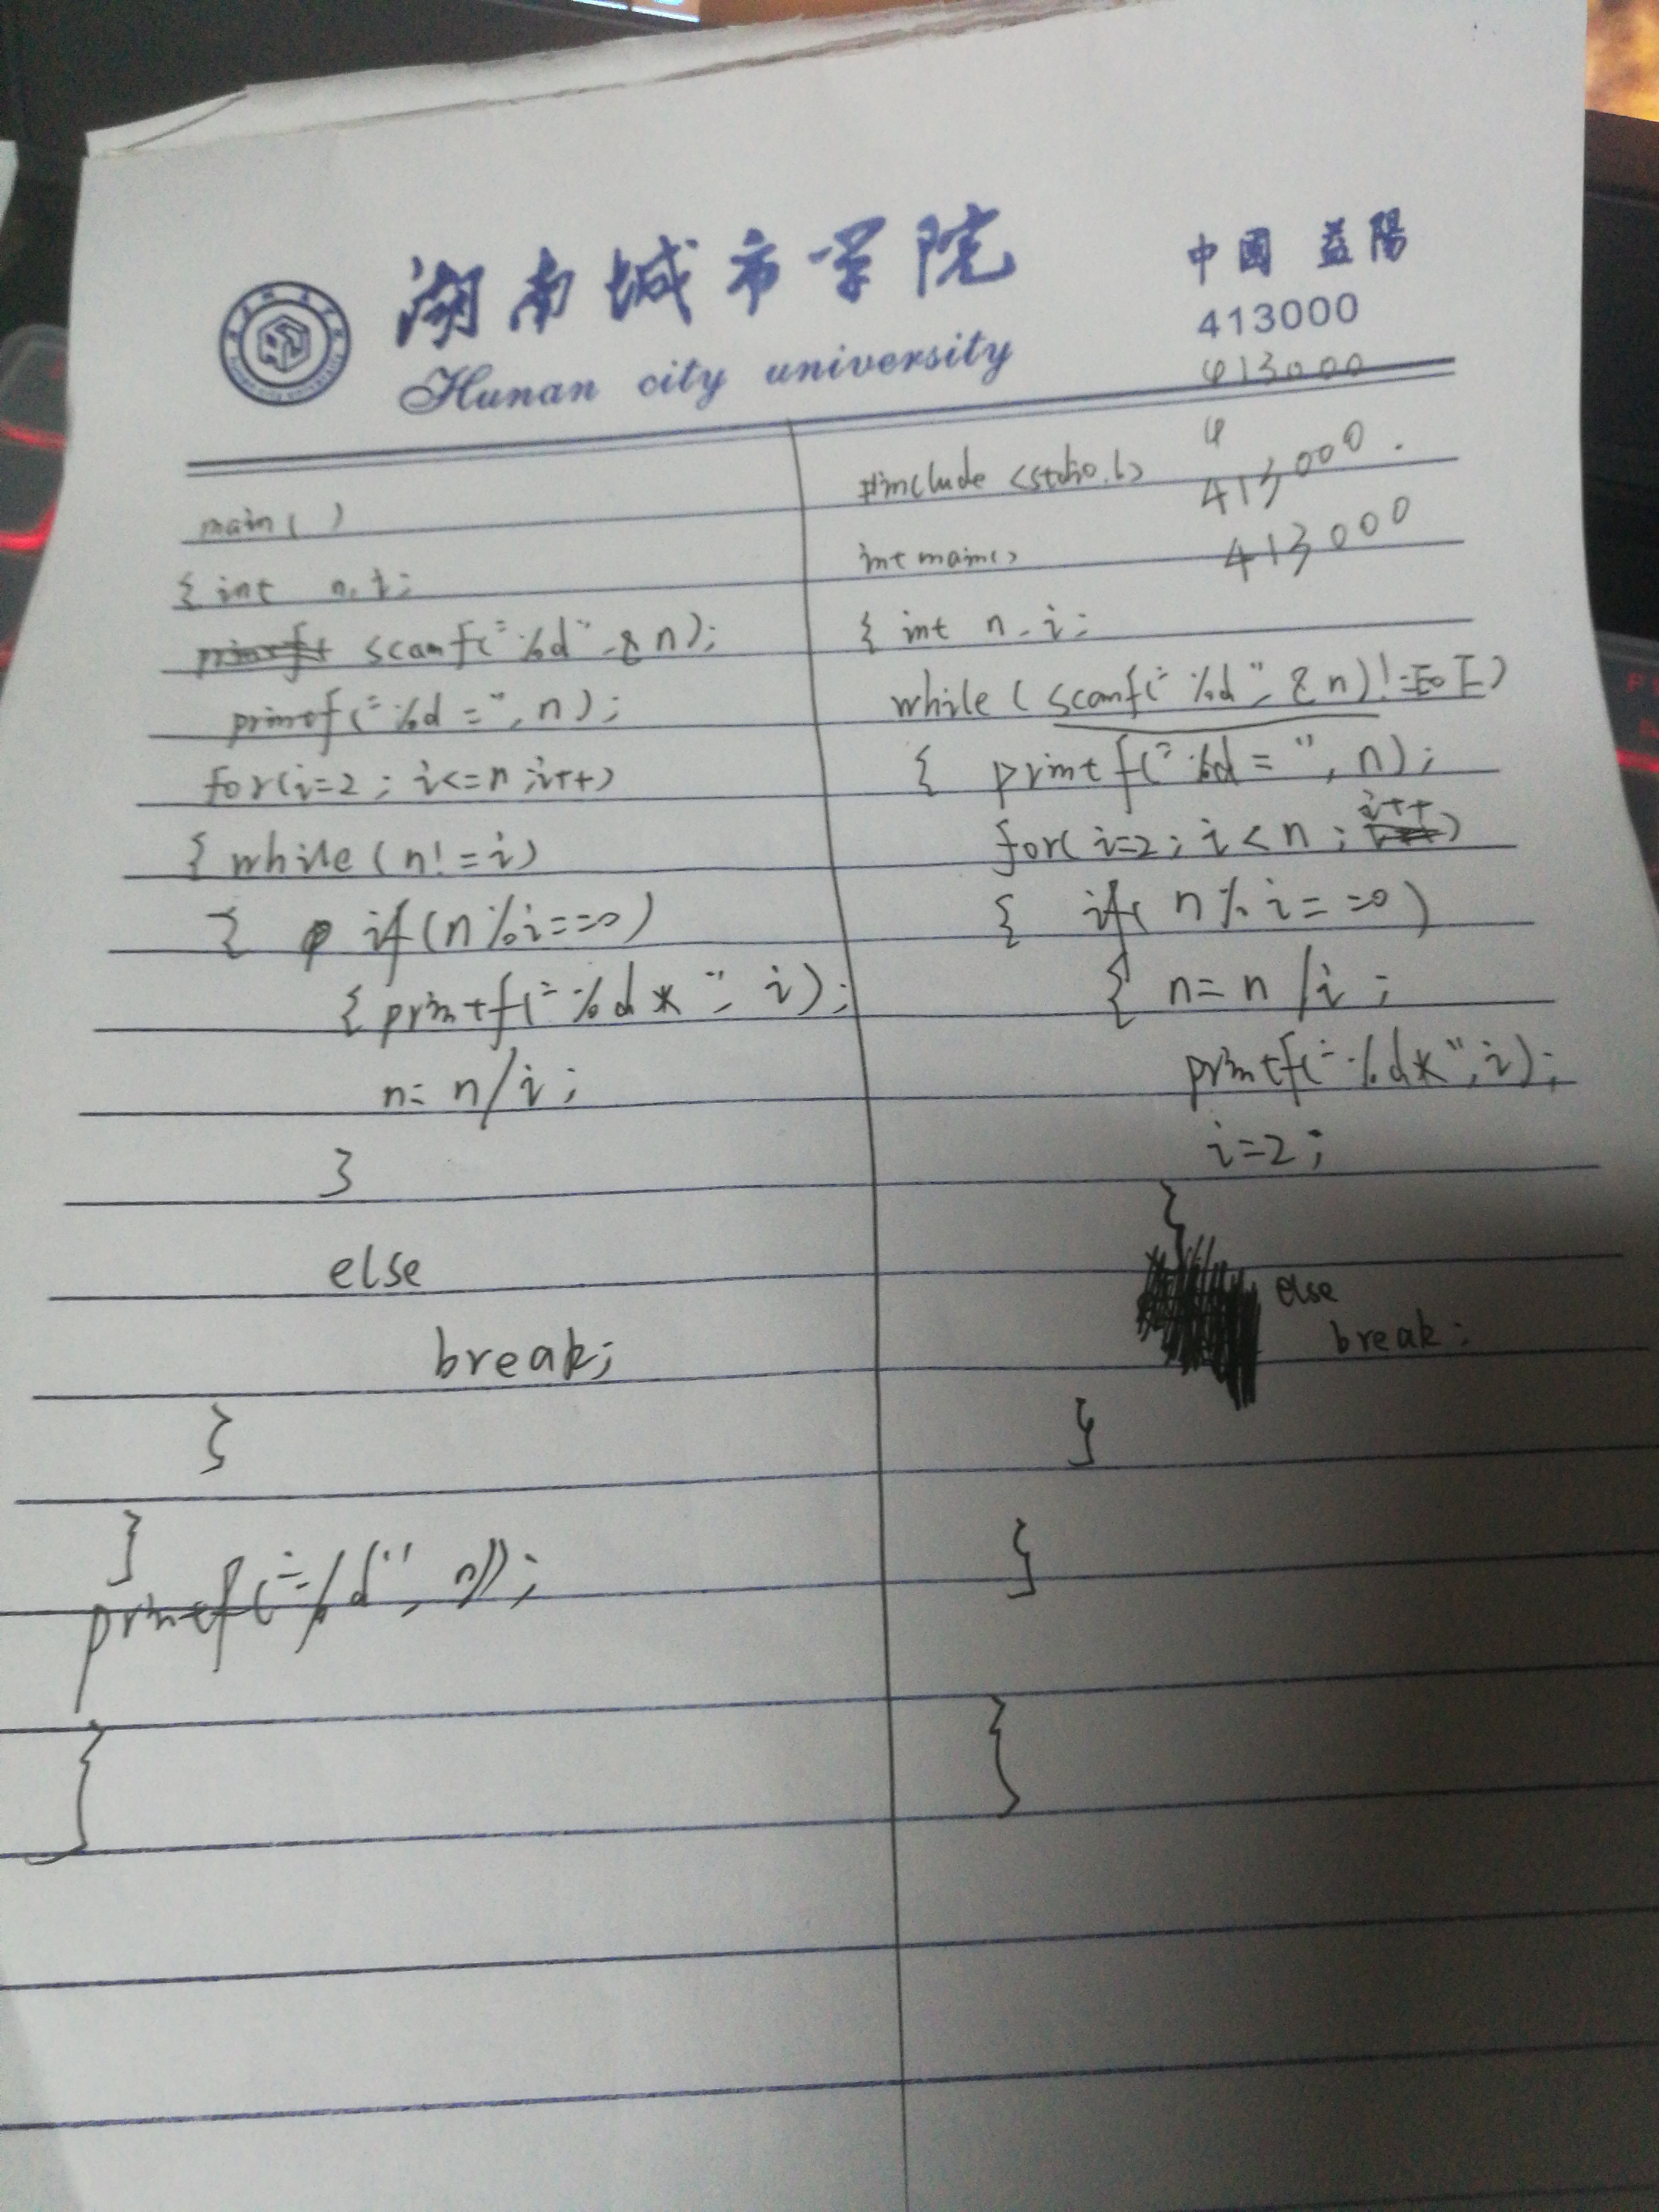 湖南城市学院
Hunan city university
中國 益陽
413000
413000
4
413000.
413000
main( )
{ int n,i;
printf( scanf("%d",&n);
printf("%d=",n);
for(i=2; i<=n;i++)
{ while(n!=i)
{ if(n%i==0)
{ printf("%d*", i);
n= n/i;
}
else
break;
}
}
printf("%d", n));
}
#include <stdio.h>
int main()
{ int n,i;
while(scanf("%d",&n)!=EOF)
{ printf("%d=",n);
for(i=2;i<n; i++)
{ if( n%i==0)
{ n= n/i;
printf("%d*",i);
i=2;
}
else
break;
}
}
}